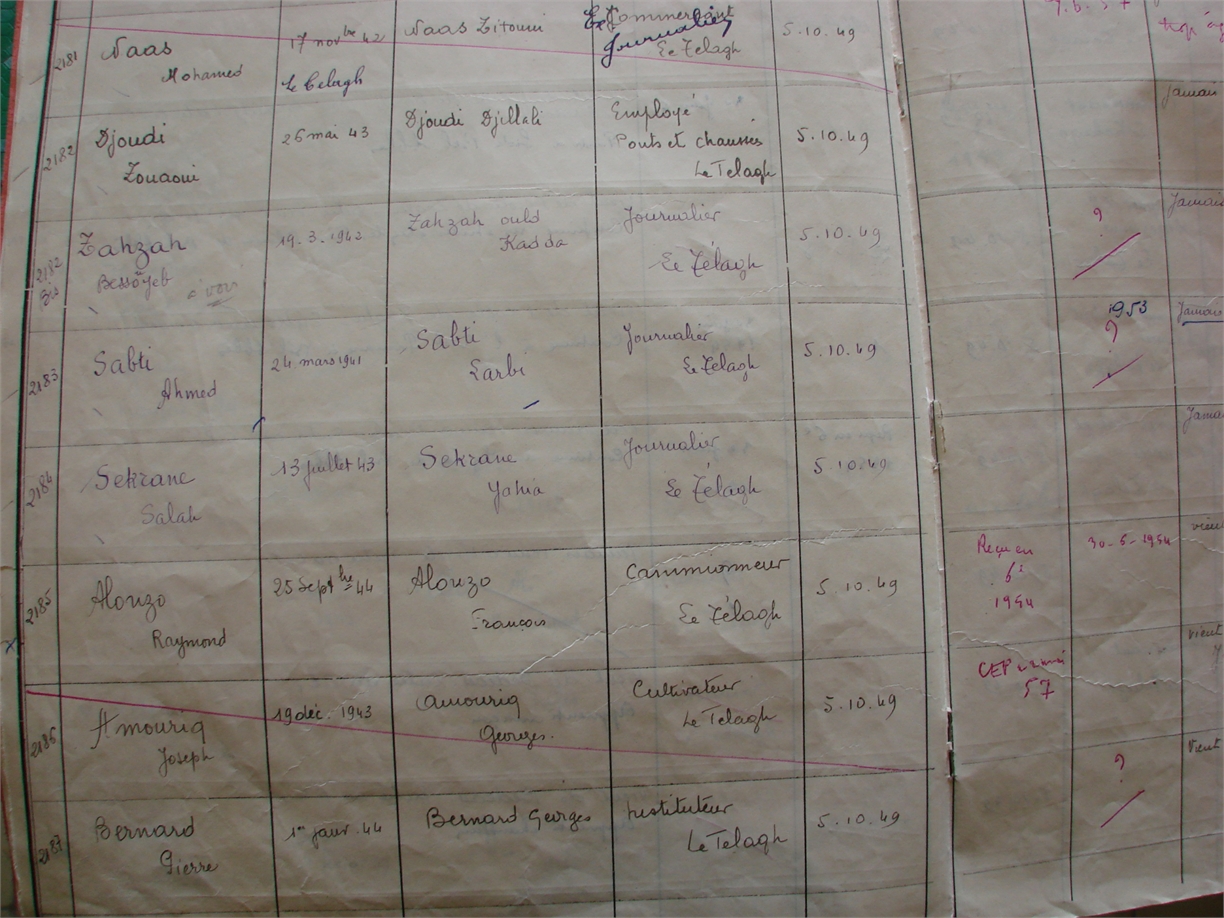 2181 Naas 17 novbre 42 Naas Zitouni Commerçant 5.10.49
Journalier
Mohamed Le Telagh Le Télagh
2182 Djoudi 26 mai 43 Djoudi Djillali Employé 5.10.49 Jamais
Ponts et chaussées
Zouaoui Le Telagh
2182 Bis Zahzah 19.3.1942 Zahzah ould Journalier 5.10.49 ? Jamais
Kadda
Bessöyeb à voir Le Télagh
2183 Sabti 24 mars 1941 Sabti Journalier 5.10.49 1953 Jamais
?
Ahmed Larbi Le Télagh
2184 Sekrane 13 juillet 43 Sekrane Journalier 5.10.49 Jamai
Salah Yahia Le Télagh
2185 Alonzo 25 Septbre 44 Alonzo Camionneur 5.10.49 Reçu en 30-5-1954 vient
6e
1954
Raymond François Le Télagh
2186 Amouriq 19 déc. 1943 Amouriq Cultivateur 5.10.49 CEP vient
57
Joseph Georges. Le Telagh
2187 Bernard 1er janv. 44 Bernard Georges Instituteur 5.10.49 ? Vient
Pierre Le Telagh